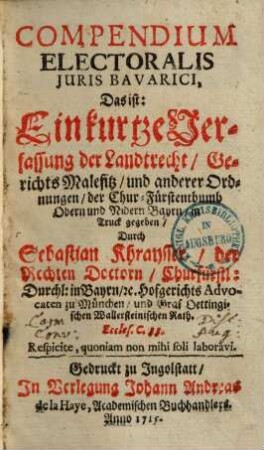 COMPENDIUM
ELECTORALIS
JURIS BAVARICI,
Das ist:
Ein kurtze Ver-
fassung der Landtrecht / Ge-
richts Malefitz / und anderer Ord-
nungen / der Chur-Fürstenthumb
Obern und Nidern Bayrn / in
Truck gegeben /
Durch
Sebastian Khraysser / der
Rechten Doctorn / Churfürstl:
Durchl: in Bayrn/ꝛc. Hofgerichts Advo-
caten zu München / und Graf Oettingi-
schen Wallersteinischen Rath.
Eccles. C. 33.
Respicite, quoniam non mihi soli laborâvi.
Gedruckt zu Ingolstatt /
In Verlegung Johann Andreas
de la Haye, Academischen Buchhandlers.
Anno 1715.